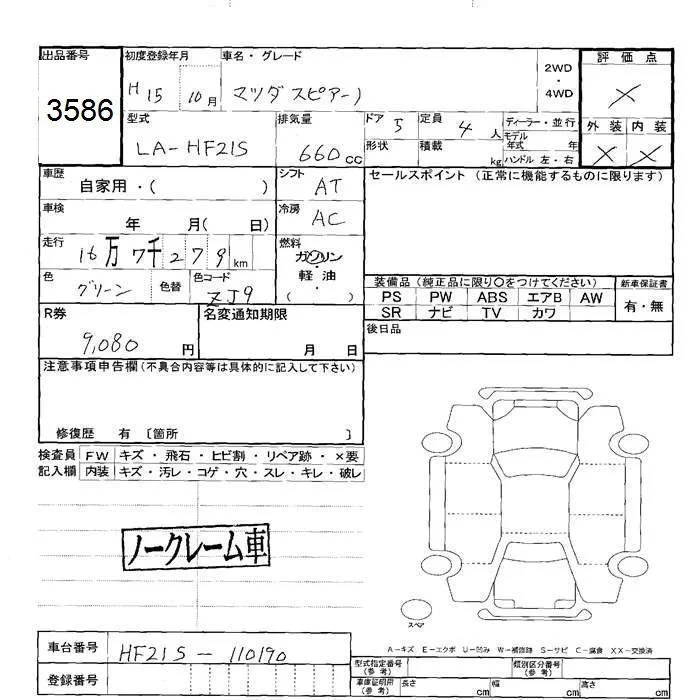 出品番号
3586
初度登録年月
H 15 10 月
車名・グレード
マツダ スピアーノ
2WD
・
4WD
評価点
×
外装 内装
× ×
型式
LA-HF21S
排気量
660 CC
ドア 5
形状
定員 4 人
積載 kg
ディーラー・並行
モデル
年式 年
ハンドル 左・右
車歴
自家用・( )
シフト
AT
セールスポイント (正常に機能するものに限ります)
車検
年 月( 日)
冷房
AC
走行
16万7千279km
燃料
ガソリン
・
軽・油
・
( )
色
グリーン
色替
色コード
ZJ9
装備品 (純正品に限り○をつけてください)
PS PW ABS エアB AW
SR ナビ TV カワ
新車保証書
有・無
R券
9,080 円
名変通知期限
月 日
後日品
注意事項申告欄(不具合内容等は具体的に記入して下さい)
修復歴 有 〔箇所 〕
検査員 FW キズ・飛石・ヒビ割・リペア跡・×要
記入欄 内装 キズ・汚レ・コゲ・穴・スレ・キレ・破レ
ノークレーム車
スペア
A-キズ E-エクボ U-凹み W-補修跡 S-サビ C-腐食 XX-交換済
車台番号
HF21S-110190
登録番号
型式指定番号
(参考)
類別区分番号
(参考)
車庫証明用
(参考)
長さ cm 幅 cm 高さ cm